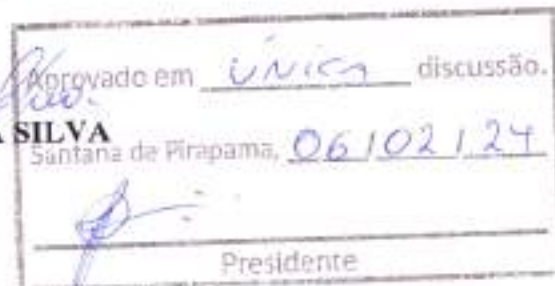 Aprovado em única discussão.
A SILVA
Santana de Pirapama, 06/02/24
Presidente